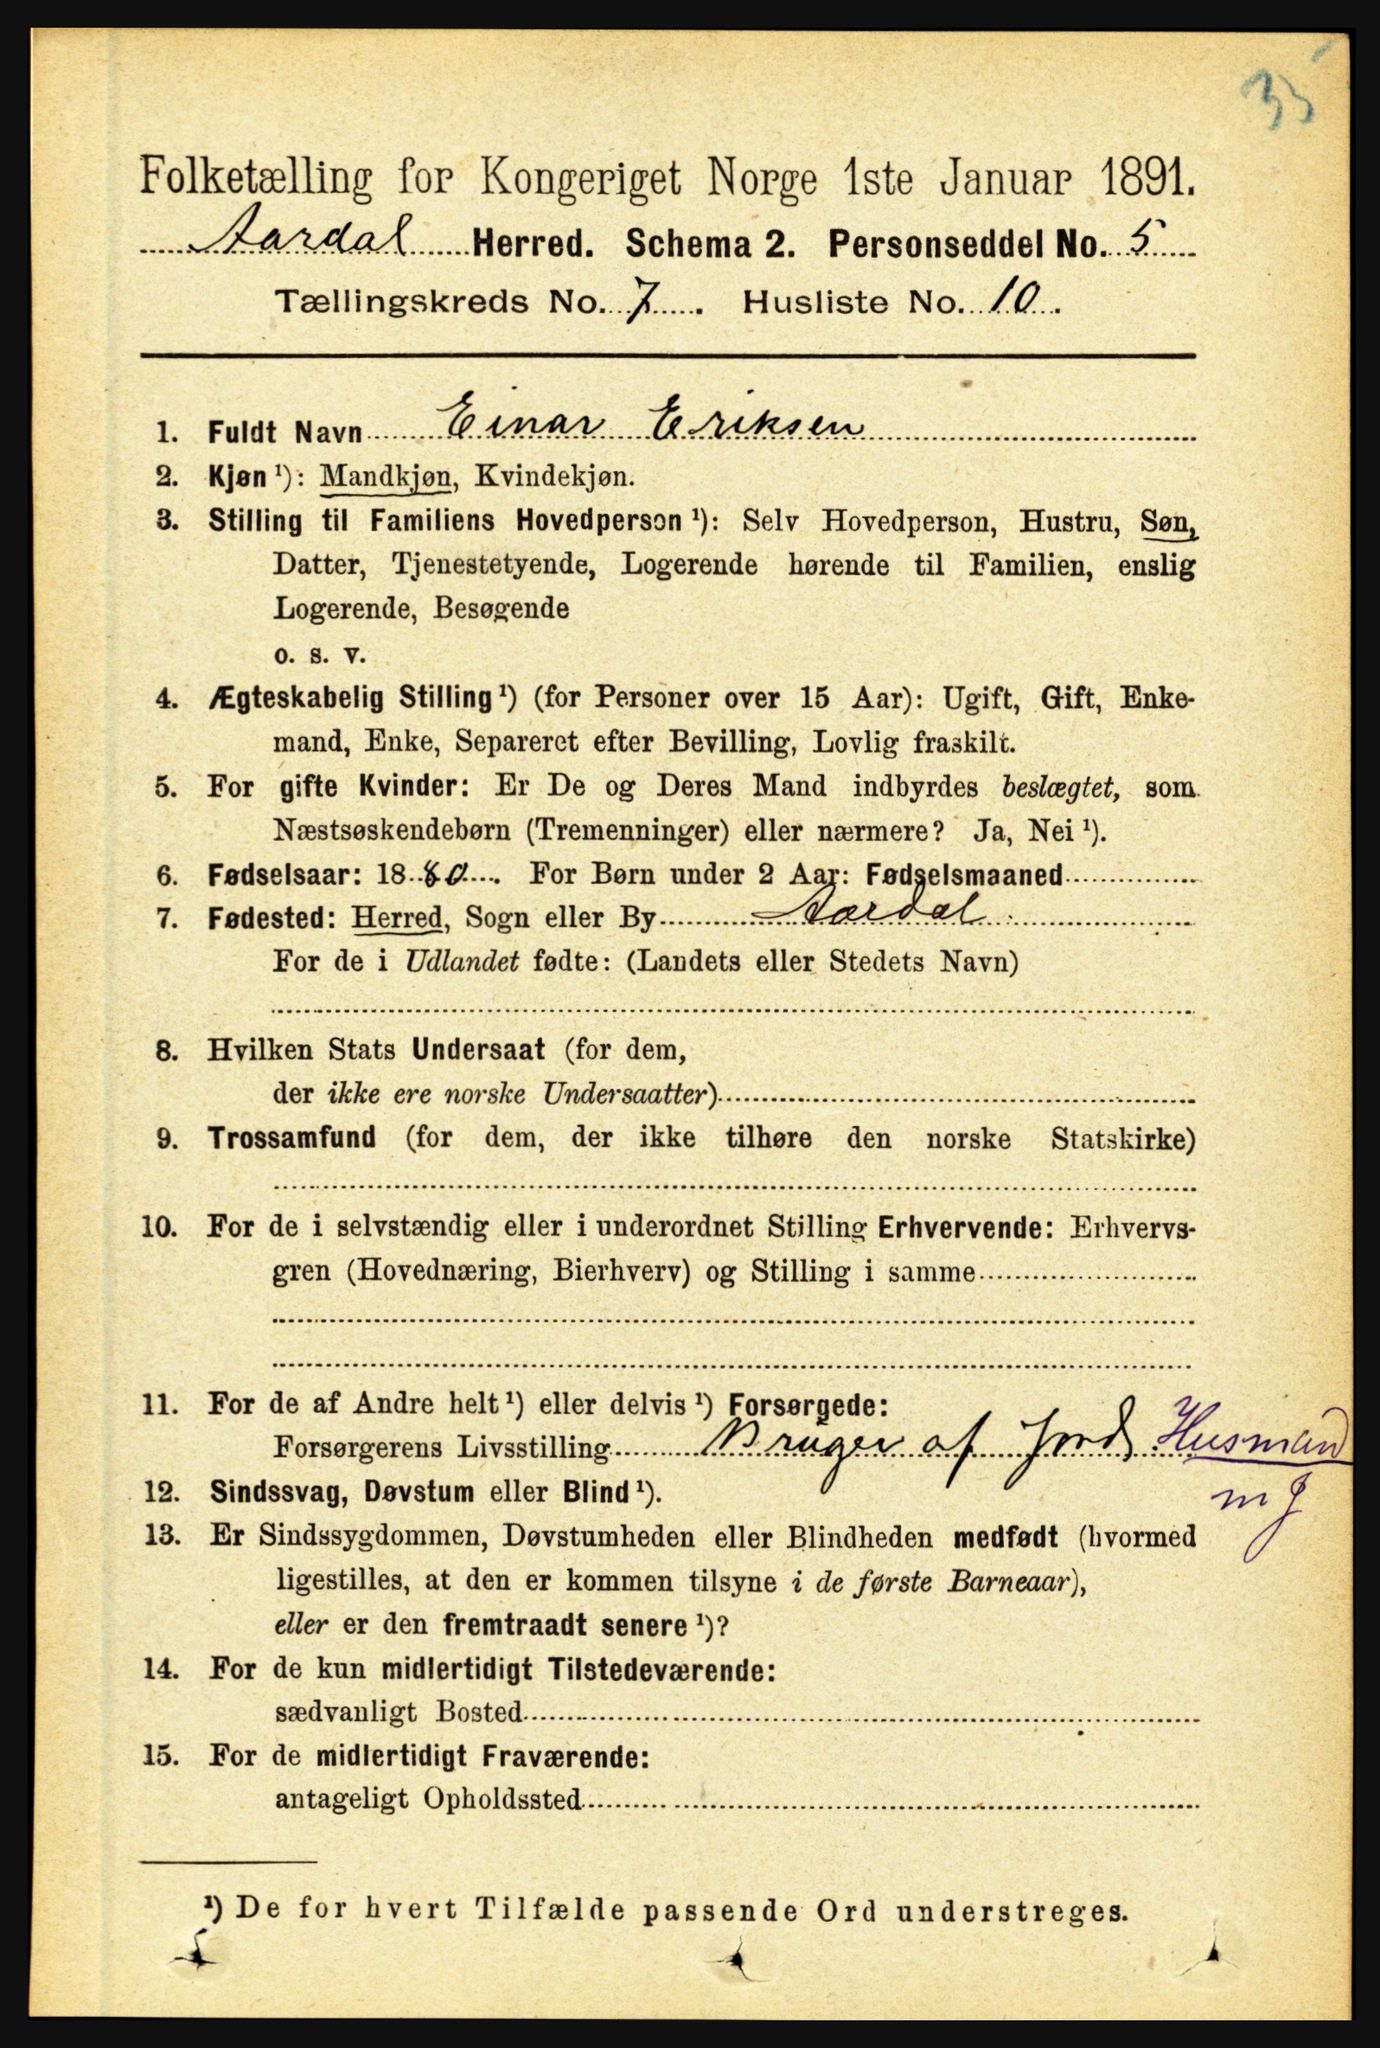 35
Folketælling for Kongeriget Norge 1ste Januar 1891.
Aardal Herred. Schema 2. Personseddel No. 5
Tællingskreds No. 7. Husliste No. 10.
1. Fuldt Navn Einar Eriksen
2. Kjøn ¹): Mandkjøn, Kvindekjøn.
3. Stilling til Familiens Hovedperson ¹): Selv Hovedperson, Hustru, Søn,
Datter, Tjenestetyende, Logerende hørende til Familien, enslig
Logerende, Besøgende
o. s. v.
4. Ægteskabelig Stilling ¹) (for Personer over 15 Aar): Ugift, Gift, Enke-
mand, Enke, Separeret efter Bevilling, Lovlig fraskilt.
5. For gifte Kvinder: Er De og Deres Mand indbyrdes beslægtet, som
Næstsøskendebørn (Tremenninger) eller nærmere? Ja, Nei ¹).
6. Fødselsaar: 1880. For Børn under 2 Aar: Fødselsmaaned
7. Fødested: Herred, Sogn eller By Aardal
For de i Udlandet fødte: (Landets eller Stedets Navn)
8. Hvilken Stats Undersaat (for dem,
der ikke ere norske Undersaatter)
9. Trossamfund (for dem, der ikke tilhøre den norske Statskirke)
10. For de i selvstændig eller i underordnet Stilling Erhvervende: Erhvervs-
gren (Hovednæring, Bierhverv) og Stilling i samme
11. For de af Andre helt ¹) eller delvis ¹) Forsørgede:
Forsørgerens Livsstilling Bruger af Jord Husmand
m J
12. Sindssvag, Døvstum eller Blind ¹).
13. Er Sindssygdommen, Døvstumheden eller Blindheden medfødt (hvormed
ligestilles, at den er kommen tilsyne i de første Barneaar),
eller er den fremtraadt senere ¹)?
14. For de kun midlertidigt Tilstedeværende:
sædvanligt Bosted
15. For de midlertidigt Fraværende:
antageligt Opholdssted
¹) De for hvert Tilfælde passende Ord understreges.